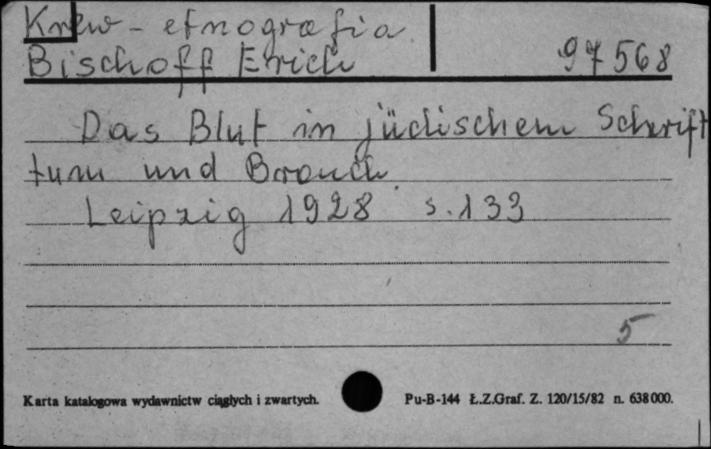 Krew - etnografia
Bischoff Erich 97568
Das Blut in jüdischem Schrift
tum und Brauch.
Leipzig 1928 s. 133
5
Karta katalogowa wydawnictw ciągłych i zwartych. Pu-B-144 Ł.Z.Graf. Z. 120/15/82 n. 638000.